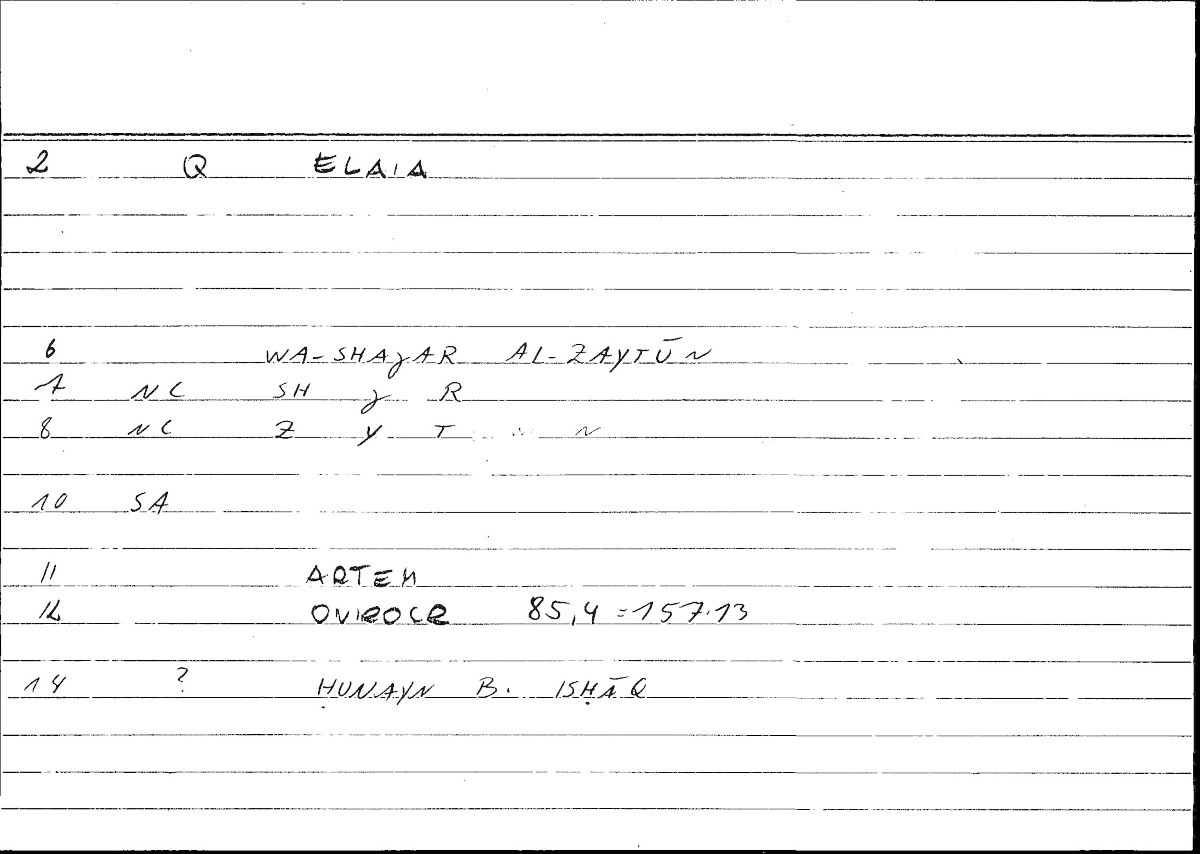 2 Q ELAIA
6 WA-SHAJAR AL-ZAYTŪN
7 NC SH J R
8 NC Z Y T N
10 SA
11 ARTEM
12 OVIROCR 85,4 = 157.13
14 ? ḤUNAYN B. ISḤĀQ